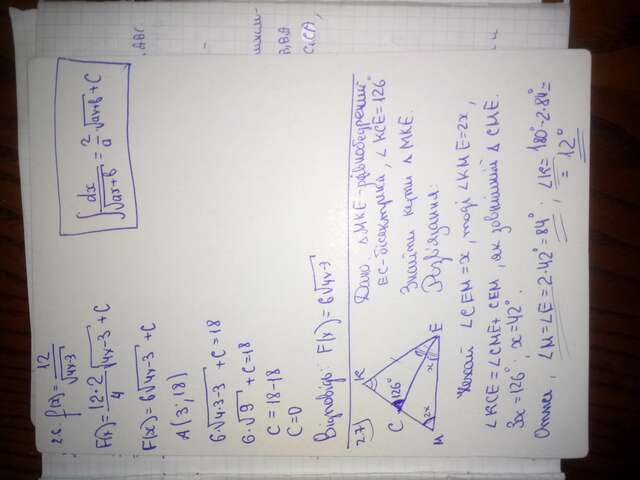 2.6. f(x) = 12/√(4x-3)
F(x) = (12·2)/4 √(4x-3) + C
F(x) = 6√(4x-3) + C
A(3; 18)
6·√(4·3-3) + C = 18
6·√9 + C = 18
C = 18-18
C = 0
Відповідь: F(x) = 6√(4x-3)
∫ dx/√(ax+b) = 2/a √(ax+b) + C
2.7
M
2x
C
126°
K
x
E
Дано: ΔMKE - рівнобедрений
EC - бісектриса, ∠KCE = 126°
Знайти кути ΔMKE.
Розв'язання:
Нехай ∠CEM = x, тоді ∠KME = 2x,
∠KCE = ∠CME + CEM, як зовнішній Δ CME.
3x = 126°; x = 42°.
Отже, ∠M = ∠E = 2·42° = 84°; ∠K = 180° - 2·84° =
= 12°
ABC